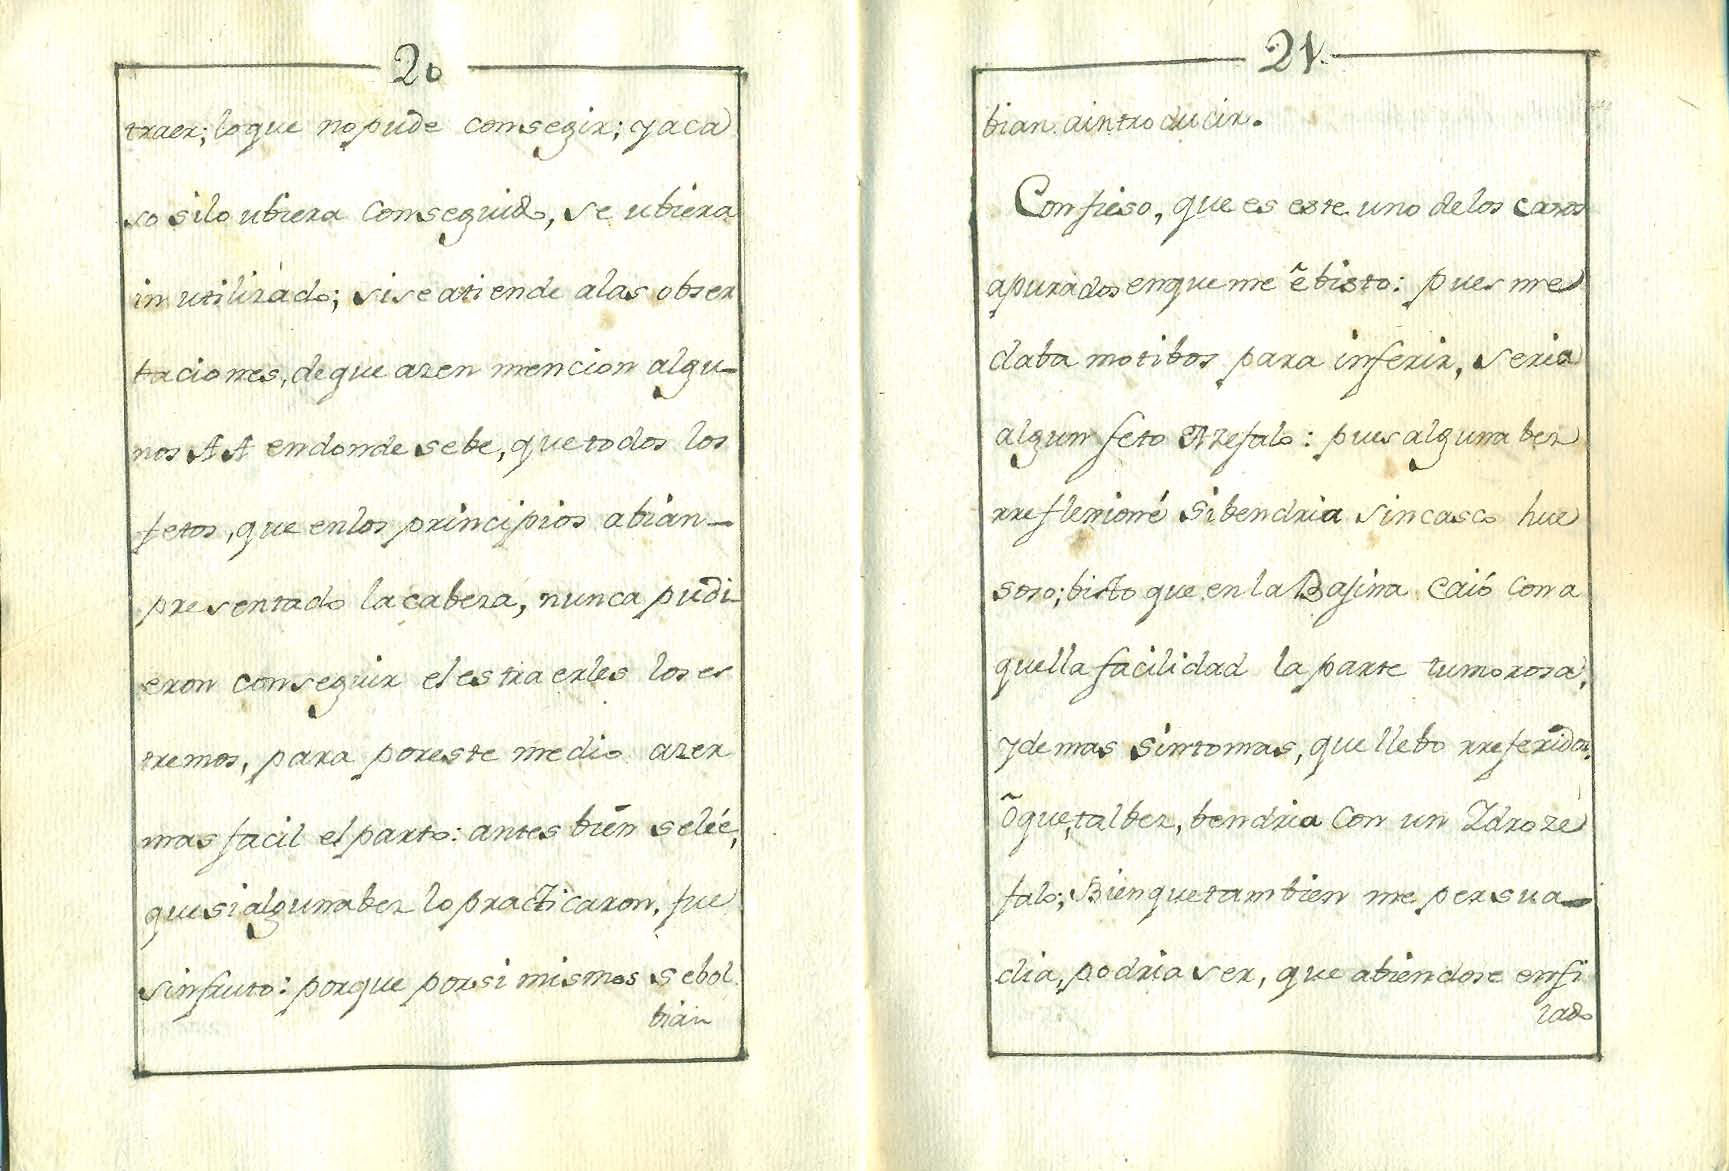 20
traer; lo que no pude consegir; y aca
so si lo ubiera conseguido, se ubiera
inutilizado; si se atiende a las obser
taciones, de que azen mencion algu-
nos AA en donde se be, que todos los
fetos, que en los principios abian-
presentado la cabeza, nunca pudi-
eron conseguir el estraerles los es
tremos, para por este medio azer
mas facil el parto: antes bien se lée,
que si alguna bez lo practicaron, fue
sin fruto: porque por si mismos se bol
bian
21.
bian a introducir.
Confieso, que es este uno de los casos
apurados en que me ẽ bisto: pues me
daba motibos para inferir, seria
algun feto Azefalo: pues alguna bez
rreflexioné si bendria sin casco hue
soso; bisto que en la Bajina caió con a
quella facilidad la parte tumorosa,
y demas sintomas, que llebo rreferidos,
õ que, tal bez, bendria con un Idrozé
falo; Bien que tambien me persua-
dia, podria ser, que abiendose enfi
lado